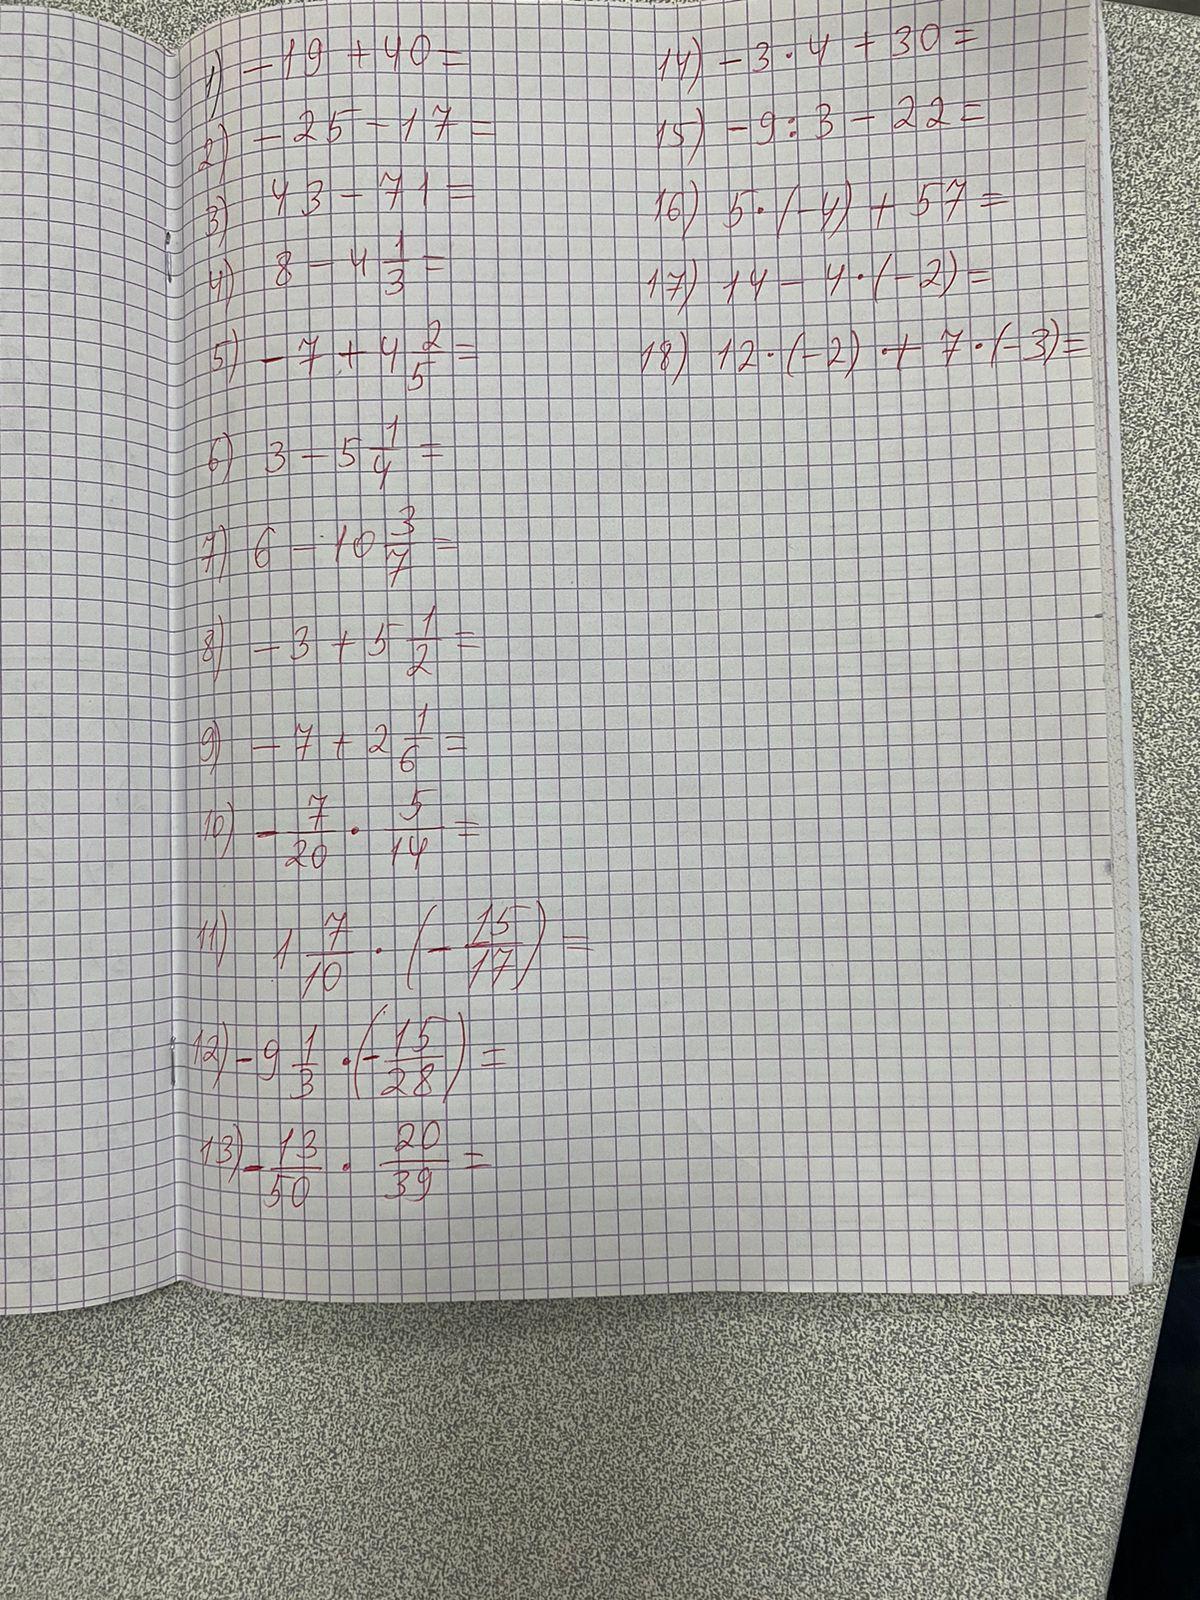 1) -19 + 40 =
2) -25 - 17 =
3) 43 - 71 =
4) 8 - 4 1/3 =
5) -7 + 4 2/5 =
6) 3 - 5 1/4 =
7) 6 - 10 3/7 =
8) -3 + 5 1/2 =
9) -7 + 2 1/6 =
10) - 7/20 · 5/14 =
11) 1 7/10 · (- 15/17) =
12) -9 1/3 · (- 15/28) =
13) - 13/50 · 20/39 =
14) -3 · 4 + 30 =
15) -9 : 3 - 22 =
16) 5 · (-4) + 57 =
17) 14 - 4 · (-2) =
18) 12 · (-2) + 7 · (-3) =